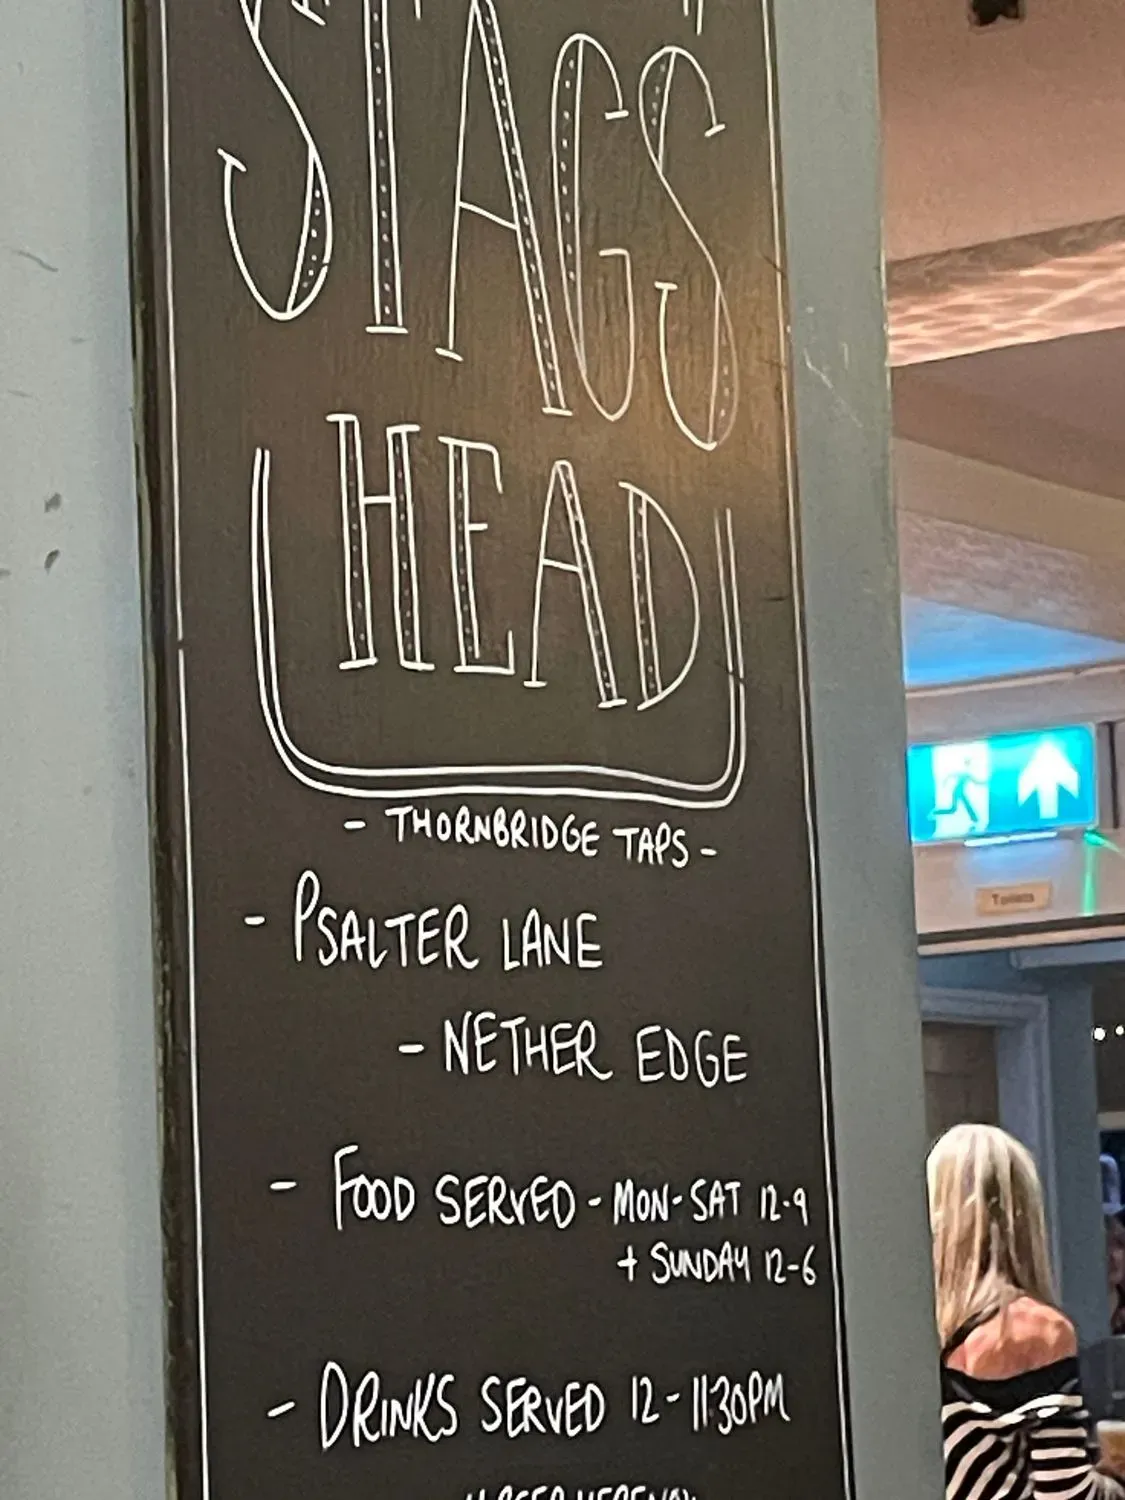 STAGS
HEAD
- THORNBRIDGE TAPS -
- PSALTER LANE
- NETHER EDGE
- FOOD SERVED - MON-SAT 12-9
+ SUNDAY 12-6
- DRINKS SERVED 12 - 11:30PM
Toilets